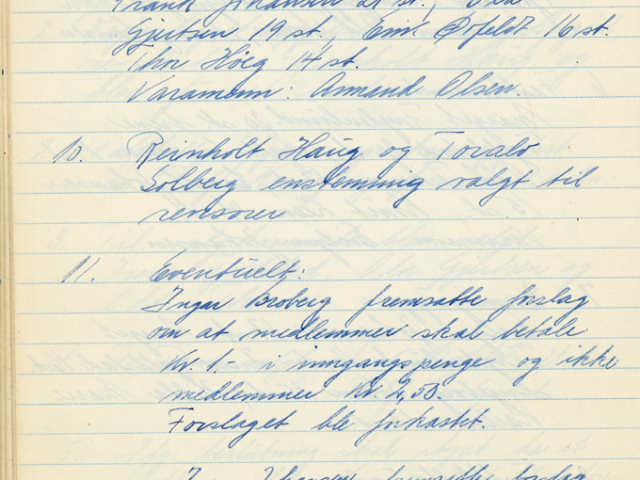 Frank Johansen 21 st.,
Gjertsen 19 st., Emil Øofeldt 16 st.
Thor Höeg 14 st.
Varamenn: Armand Olsen.
10. Reinholt Haug og Toralv
Solberg enstemmig valgt til
revisorer
11. Eventuelt:
Ingar Broberg fremsatte forslag
om at medlemmer skal betale
kr. 1.- i inngangspenge og ikke
medlemmer kr. 2,50.
Forslaget ble forkastet.
fremsatte forslag